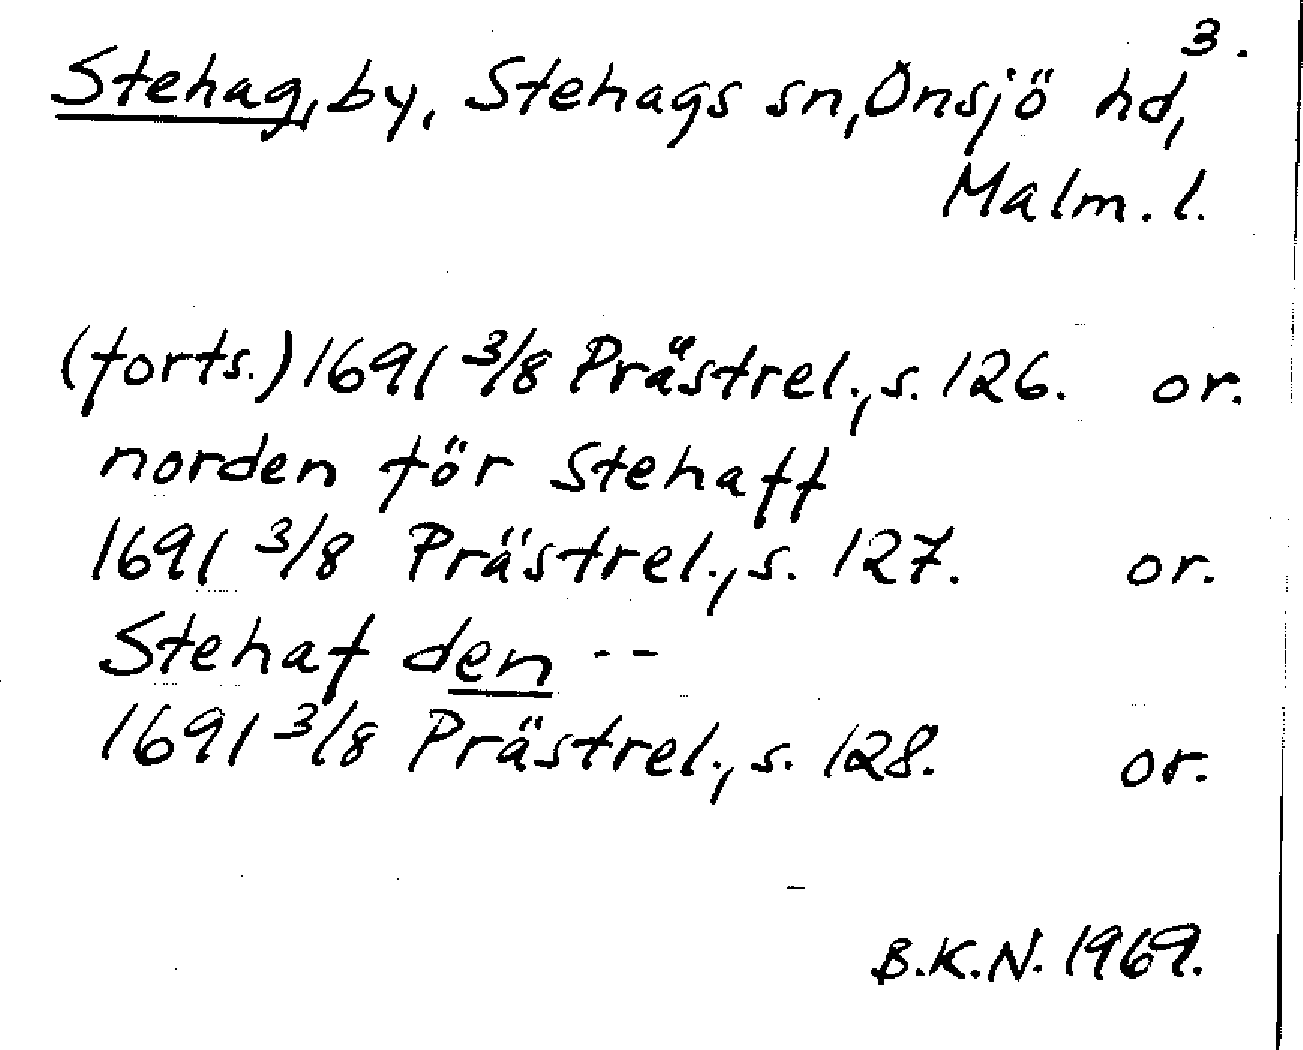 3.
Stehag, by, Stehags sn, Onsjö hd,
Malm. l.
(forts.) 1691 3/8 Prästrel., s. 126. or.
norden för Stehaff
1691 3/8 Prästrel., s. 127. or.
Stehaf den --
1691 3/8 Prästrel., s. 128. or.
B.K.N. 1969.